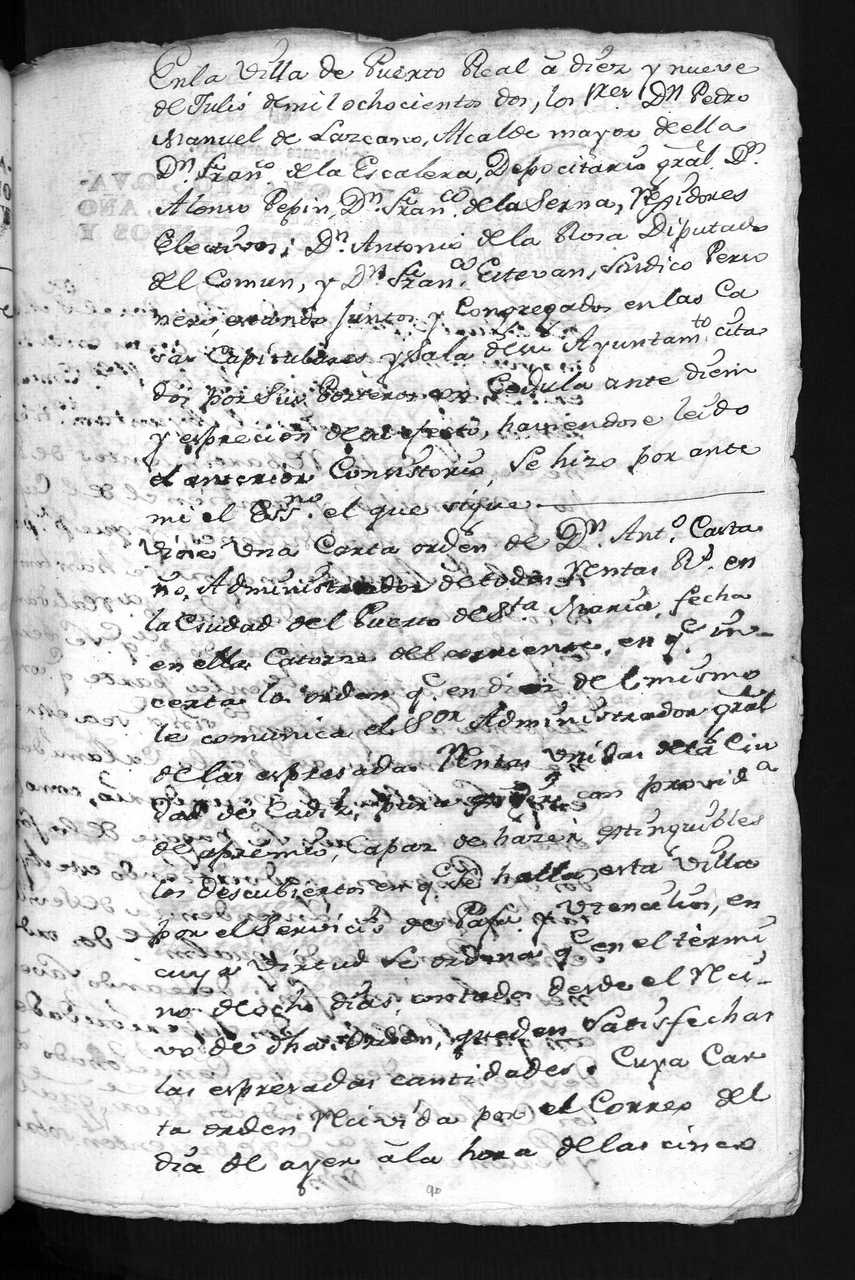 Enla Villa de Puerto Real à diez y nueve
de Julio de mil ochocientos dos, los Sres. Dn. Pedro
Manuel de Lazcano, Alcalde mayor de ella
Dn. Franco. de la Escalera, Depocitario gral. Dn.
Alonso Pepin, Dn. Franco. de la Serna, Regidores
Electivos; Dn. Antonio de la Rosa Diputado
del Comun, y Dn. Franco. Estevan, Sindico Perso
nero, estando juntos y Congregados en las Ca
sas Capitulares y Sala de su Ayuntamto. cita
dos por sus Porteros con Cedula ante diem
y esprecion del efecto, haviendose leido
el anterior Consistorio, se hizo por ante
mi el Essno. el que sigue
Viose Una Carta orden de Dn. Anto. Casta
ño, Administrador de todas Rentas Rs. en
la Ciudad del Puerto de Sta. Maria, fecha
en ella Catorze del corriente, en qe. in-
certa la orden qe. en diez del mismo
le comunica el Sor. Administrador gral
de las espresadas Rentas Unidas de la Ciu
dad de Cadiz, para qe. con provida
de apremio, Capaz de hazer estinguibles
los descubiertos en qe. se halla esta Villa
por el Servicio de Paja y Utencilios, en
cuya Virtud se ordena qe. en el termi
no de ocho dias, contados desde el Reci-
vo de dha. orden, queden Satisfechas
las espresadas cantidades. Cuya Car
ta orden Recivida por el Correo del
dia de ayer à la hora de las cinco
90